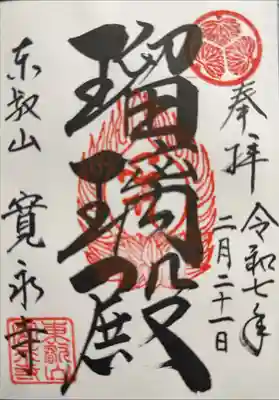 奉拝
令和七年
二月二十一日
瑠璃殿
東叡山
寛永寺